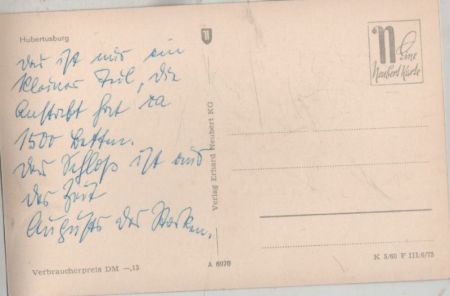 Hubertusburg
Das ist nur ein
kleiner Teil, die
Anstalt hat ca
1500 Betten.
Das Schloß ist aus
der Zeit
Augusts des Starken.
Verbraucherpreis DM —,13
Verlag Erhard Neubert KG
A 6970
N Eine
Neubert Karte
K 5/60 F 111/6/75